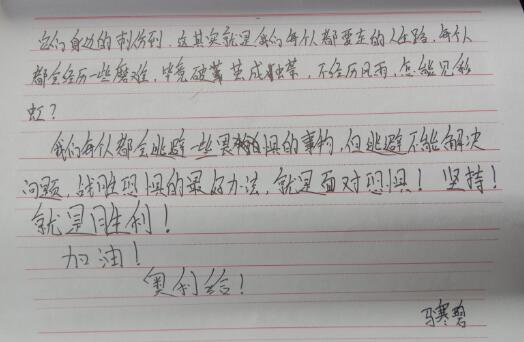 它们身边的刺份列，这其实就是我们每个人都要走的人生路，每个人
都会经历一些磨难，毕竟破茧茧成独蒂，不经历风雨，怎能见彩
虹？
我们每个人都会逃避一些畏惧的事物，但逃避不能解决
问题，战胜恐惧的最好办法，就是面对恐惧！坚持！
就是胜利！
加油！
奥利给！
马寒碧